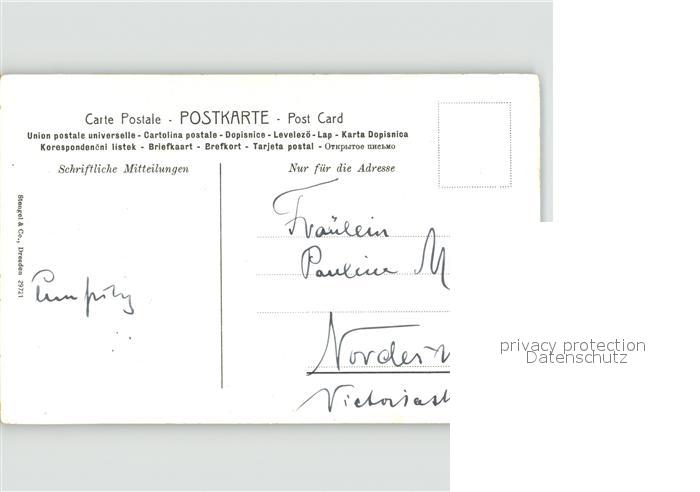 Carte Postale - POSTKARTE - Post Card
Union postale universelle - Cartolina postale - Dopisnice - Levelező-Lap - Karta Dopisnica
Korespondenční listek - Briefkaart - Brefkort - Tarjeta postal - Открытое письмо
Schriftliche Mitteilungen
Nur für die Adresse
Stengel & Co., Dresden 29721
Fräulein
Pauline M
Norder
Victoriast
privacy protection
Datenschutz